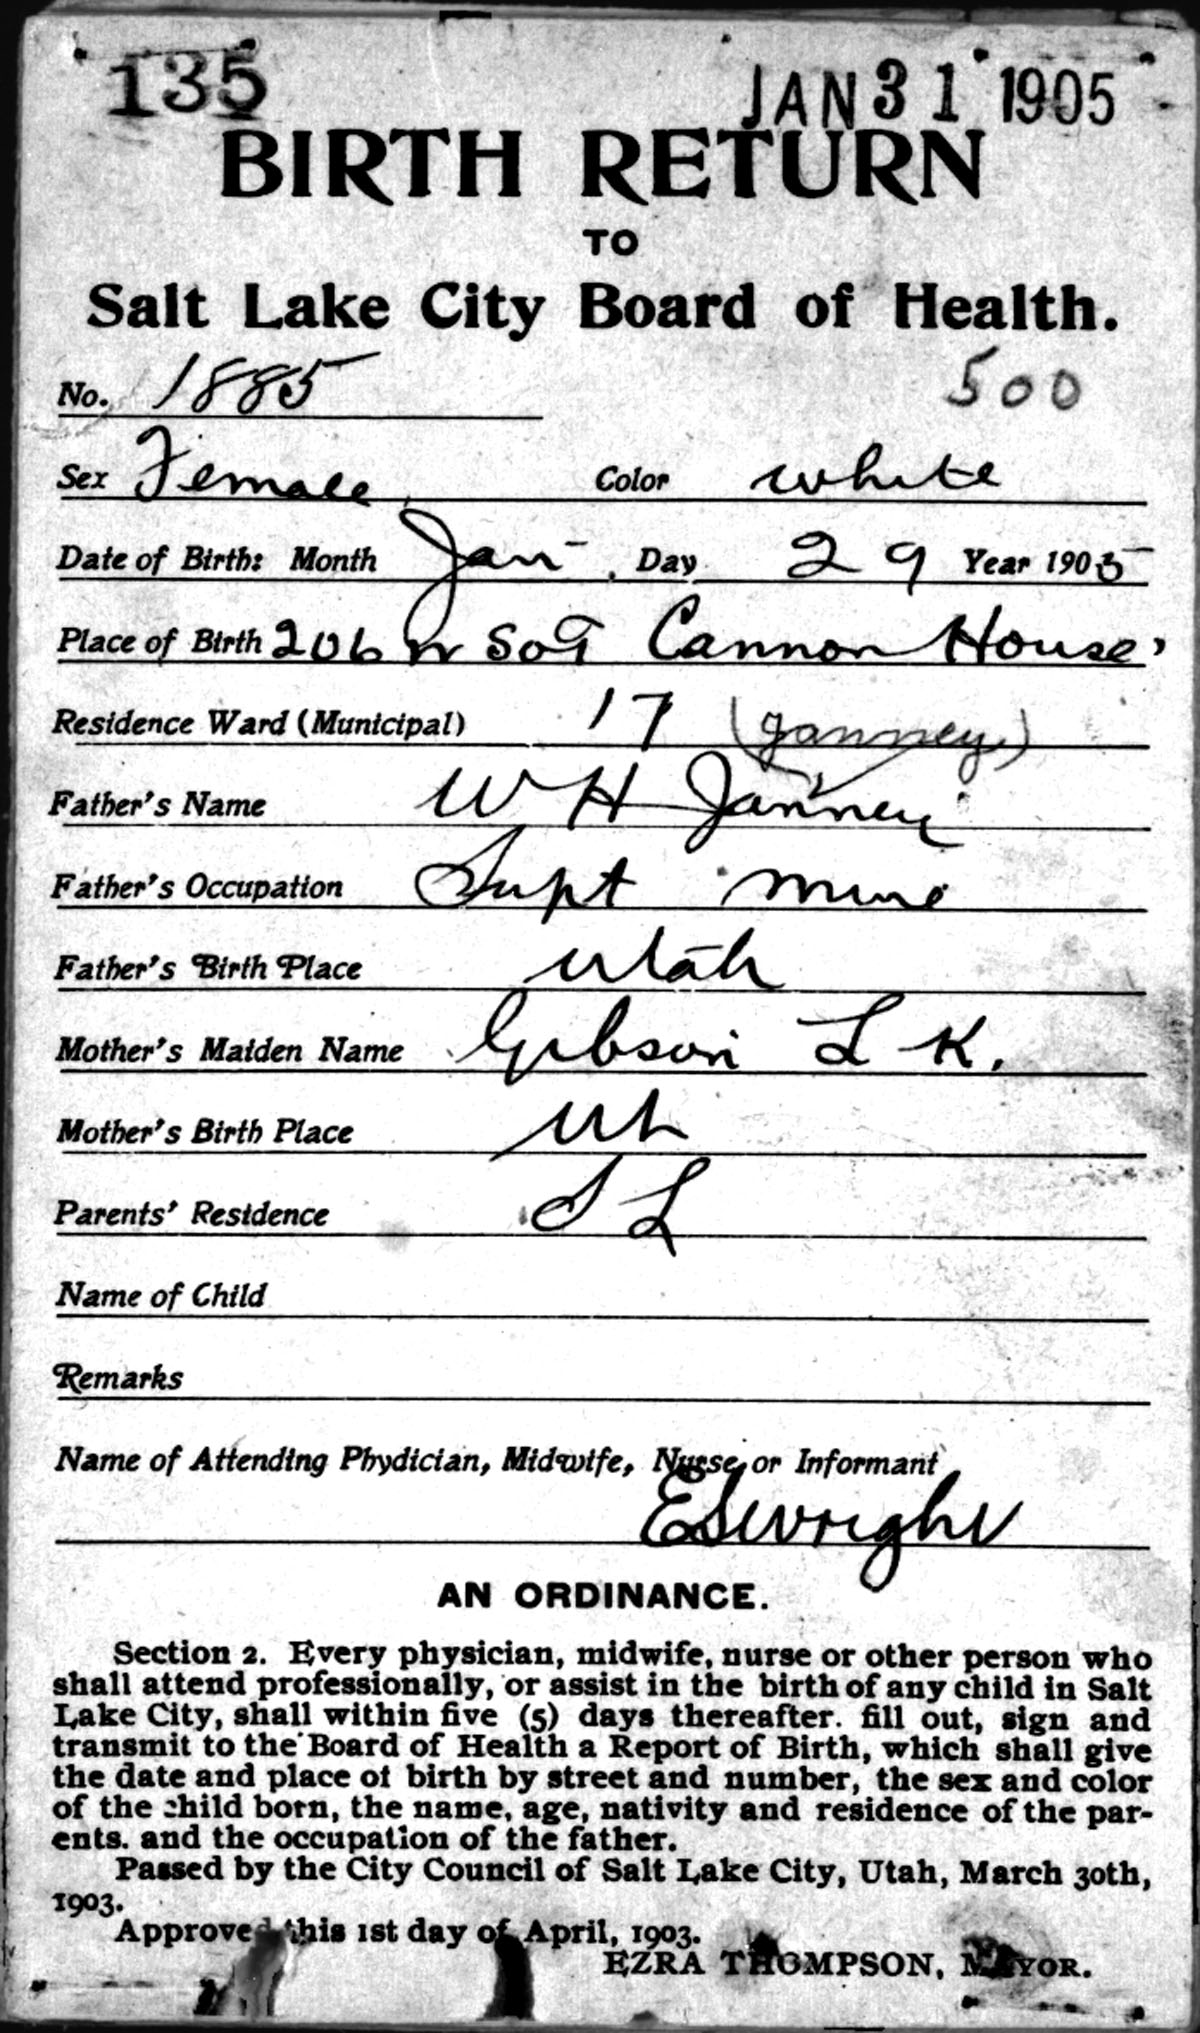 135 JAN 31 1905
BIRTH RETURN
TO
Salt Lake City Board of Health.
No. 1885 500
Sex Female Color white
Date of Birth: Month Jan Day 29 Year 1905
Place of Birth 206 W SoT Cannon House
Residence Ward (Municipal) 17 (Janney)
Father's Name W H Janney
Father's Occupation Supt mine
Father's Birth Place Utah
Mother's Maiden Name Gibson L K.
Mother's Birth Place Ut
Parents' Residence S L
Name of Child
Remarks
Name of Attending Phydician, Midwife, Nurse or Informant
ESWright
AN ORDINANCE.
Section 2. Every physician, midwife, nurse or other person who
shall attend professionally, or assist in the birth of any child in Salt
Lake City, shall within five (5) days thereafter. fill out, sign and
transmit to the Board of Health a Report of Birth, which shall give
the date and place of birth by street and number, the sex and color
of the child born, the name, age, nativity and residence of the par-
ents. and the occupation of the father.
Passed by the City Council of Salt Lake City, Utah, March 30th,
1903.
Approved this 1st day of April, 1903.
EZRA THOMPSON, MAYOR.